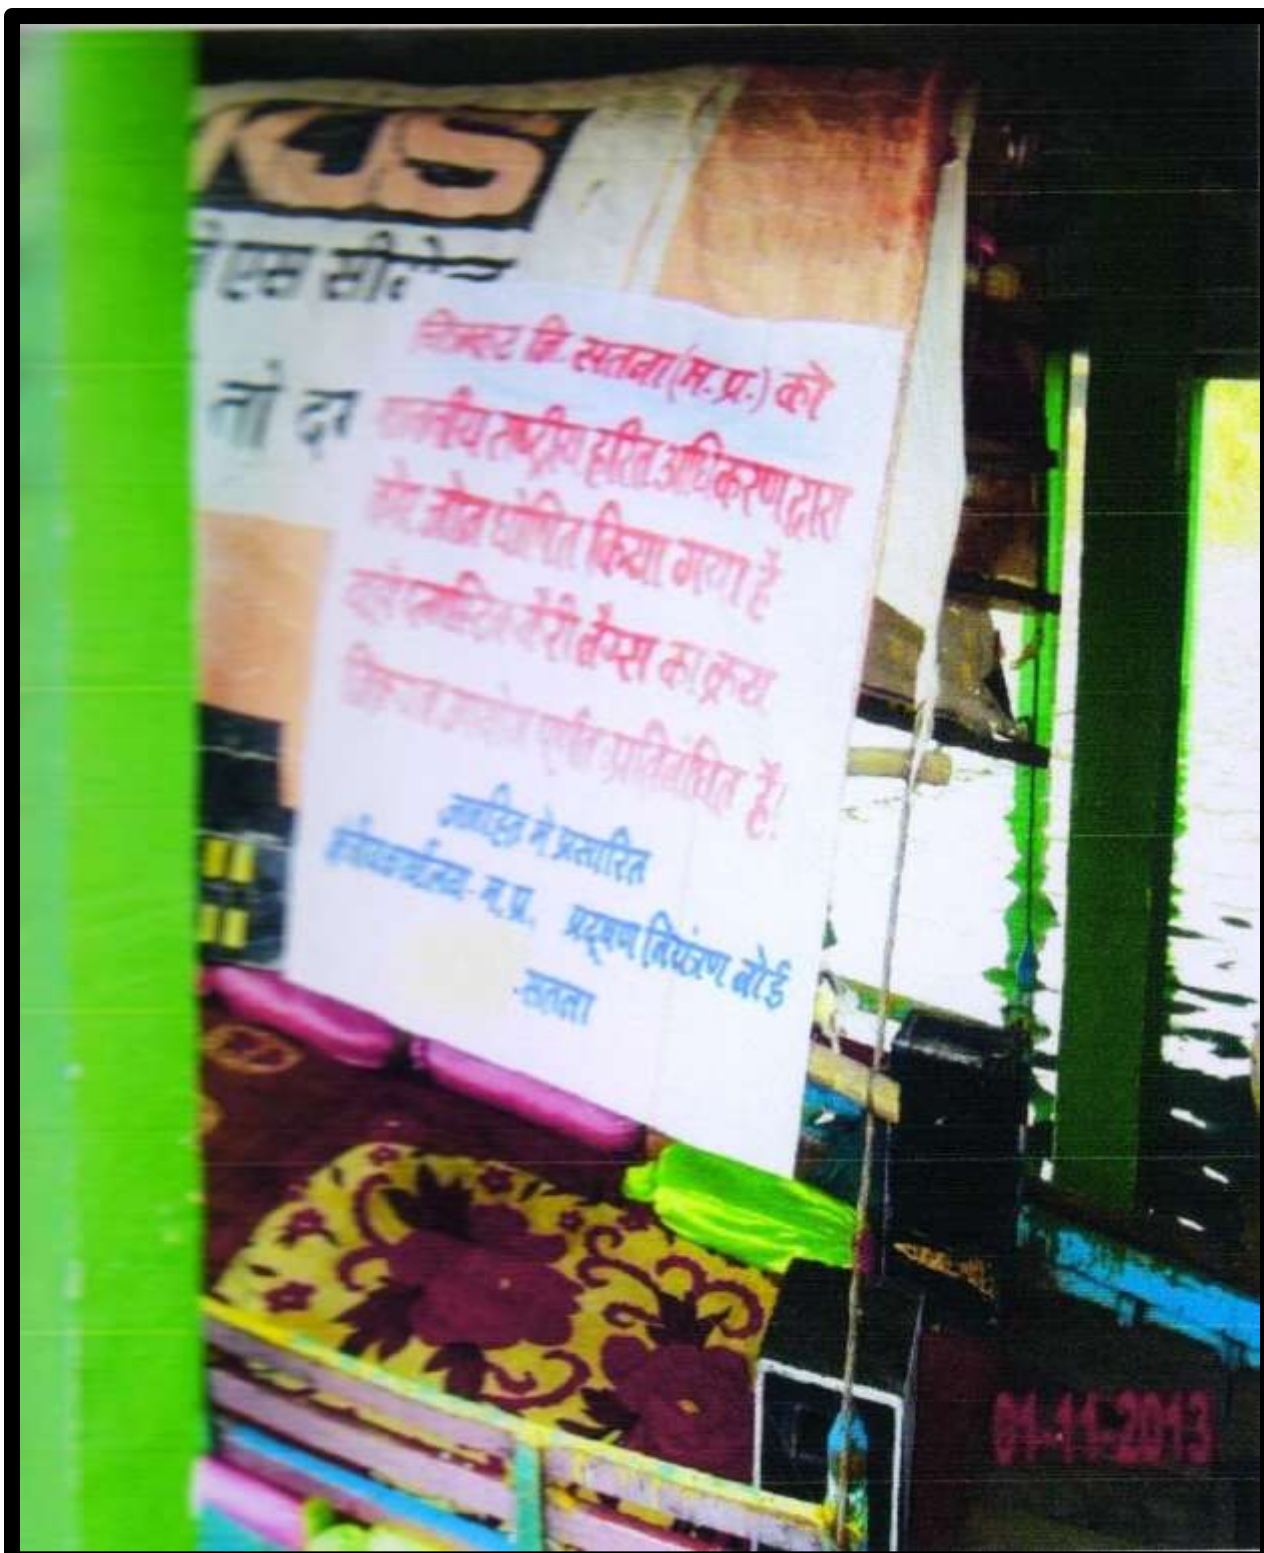 KJS
एस सी
तो
चित्रकूट जि. सतना (म.प्र.) को
माननीय राष्ट्रीय हरित अधिकरण द्वारा
नो जोन घोषित किया गया है
कैरी बैग्स का क्रय
विक्रय उपयोग पूर्णतः प्रतिबंधित है!
जनहित मे प्रसारित
क्षेत्रीय कार्यालय- म.प्र. प्रदूषण नियंत्रण बोर्ड
-सतना
01-11-2013